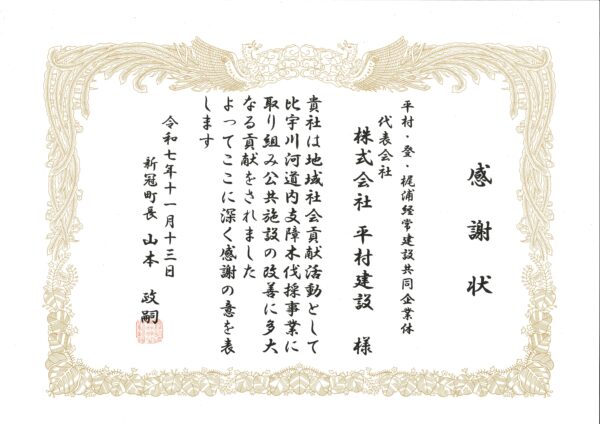 感謝状
平村・登・梶浦経常建設共同企業体
代表会社
株式会社 平村建設 様
貴社は地域社会貢献活動として
比宇川河道内支障木伐採事業に
取り組み公共施設の改善に多大
なる貢献をされました
よってここに深く感謝の意を表
します
令和七年十一月十三日
新冠町長 山本 政嗣